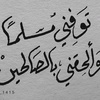 توفني مسلما
وألحقني بالصالحين